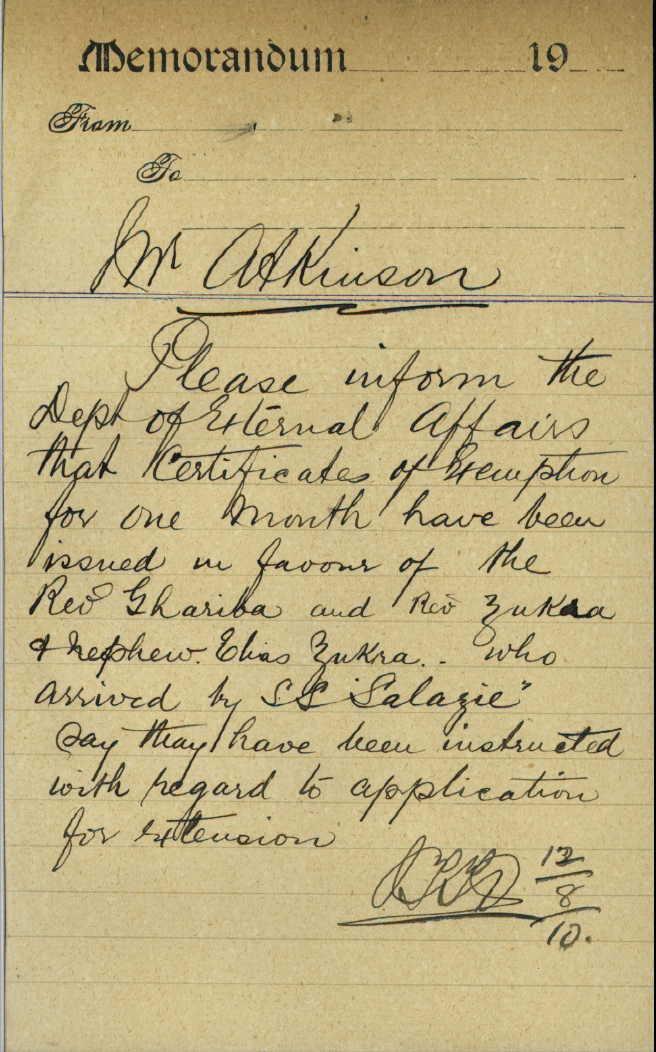 Memorandum 19
From
To
Mr Atkinson
Please inform the
Dept of External Affairs
that Certificates of Exemption
for one Month have been
issued in favour of the
Revd Ghariba and Rev Zukraa
& nephew. Elias Zukra.. who
arrived by SS "Salazie"
Say they have been instructed
with regard to application
for extension
12
8
10.